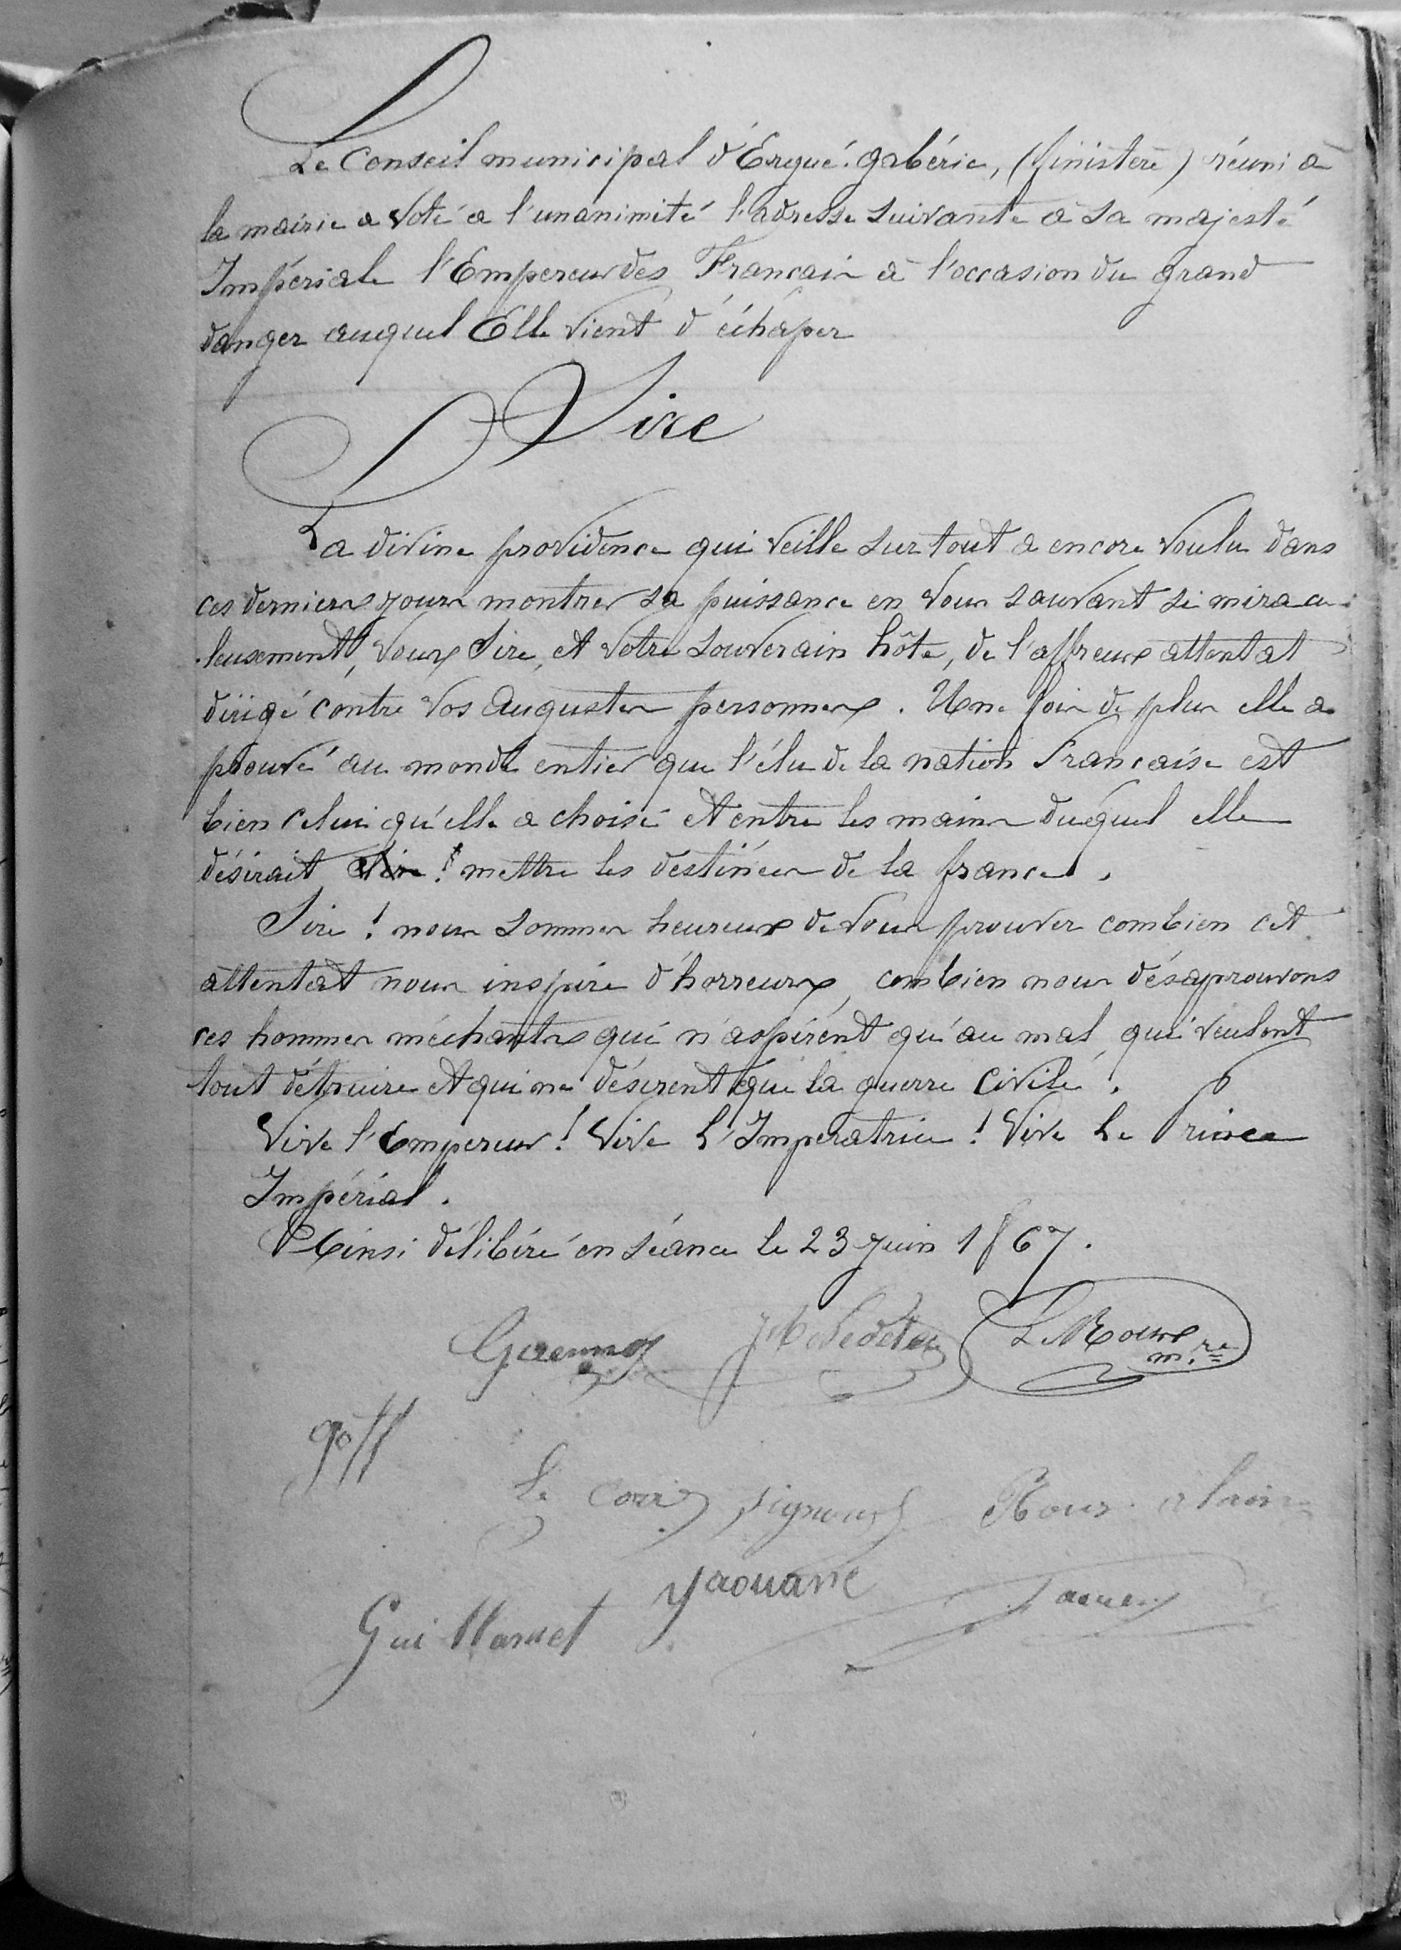 Le Conseil municipal d'Ergué-gabéric, (finistère) réuni à
la mairie a voté a l'unanimité l'adresse suivante à sa majesté
Impériale l'Empereur des Français à l'occasion du grand
danger auquel Elle vient d'échaper
Sire
La divine providence qui veille sur tout a encore voulu dans
ces derniers jours montrer sa puissance en vous sauvant si miracu-
leusement, vous, Sire, et votre souverain hôte, de l'affreux attentat
dirigé contre vos augustes personnes. Une fois de plus elle a
prouvé au monde entier que l'élu de la nation Française est
bien celui qu'elle a choisi et entre les mains duquel elle
désirait Sire! mettre les destinées de la france.
Sire! nous sommes heureux de vous prouver combien cet
attentat nous inspire d'horreurs, combien nous désaprouvons
ces hommes méchants qui n'aspirent qu'au mal, qui veulent
tout détruire et qui ne désirent que la guerre civile.
Vive l'Empereur! Vive l'Impératrice! Vive le Prince
Impérial.
Ainsi délibéré en séance le 23 juin 1867.
LeRoux
m.re
goff
Le Corr Signour Rour alain
Yaouanc
Guillamet